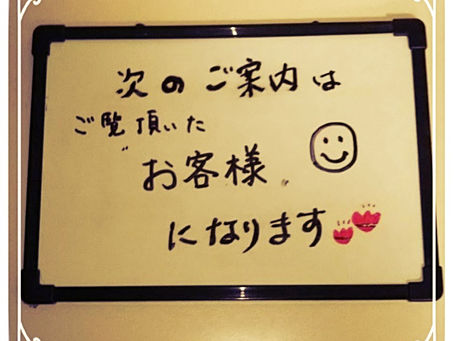 次のご案内は
ご覧頂いた
"お客様"
になります